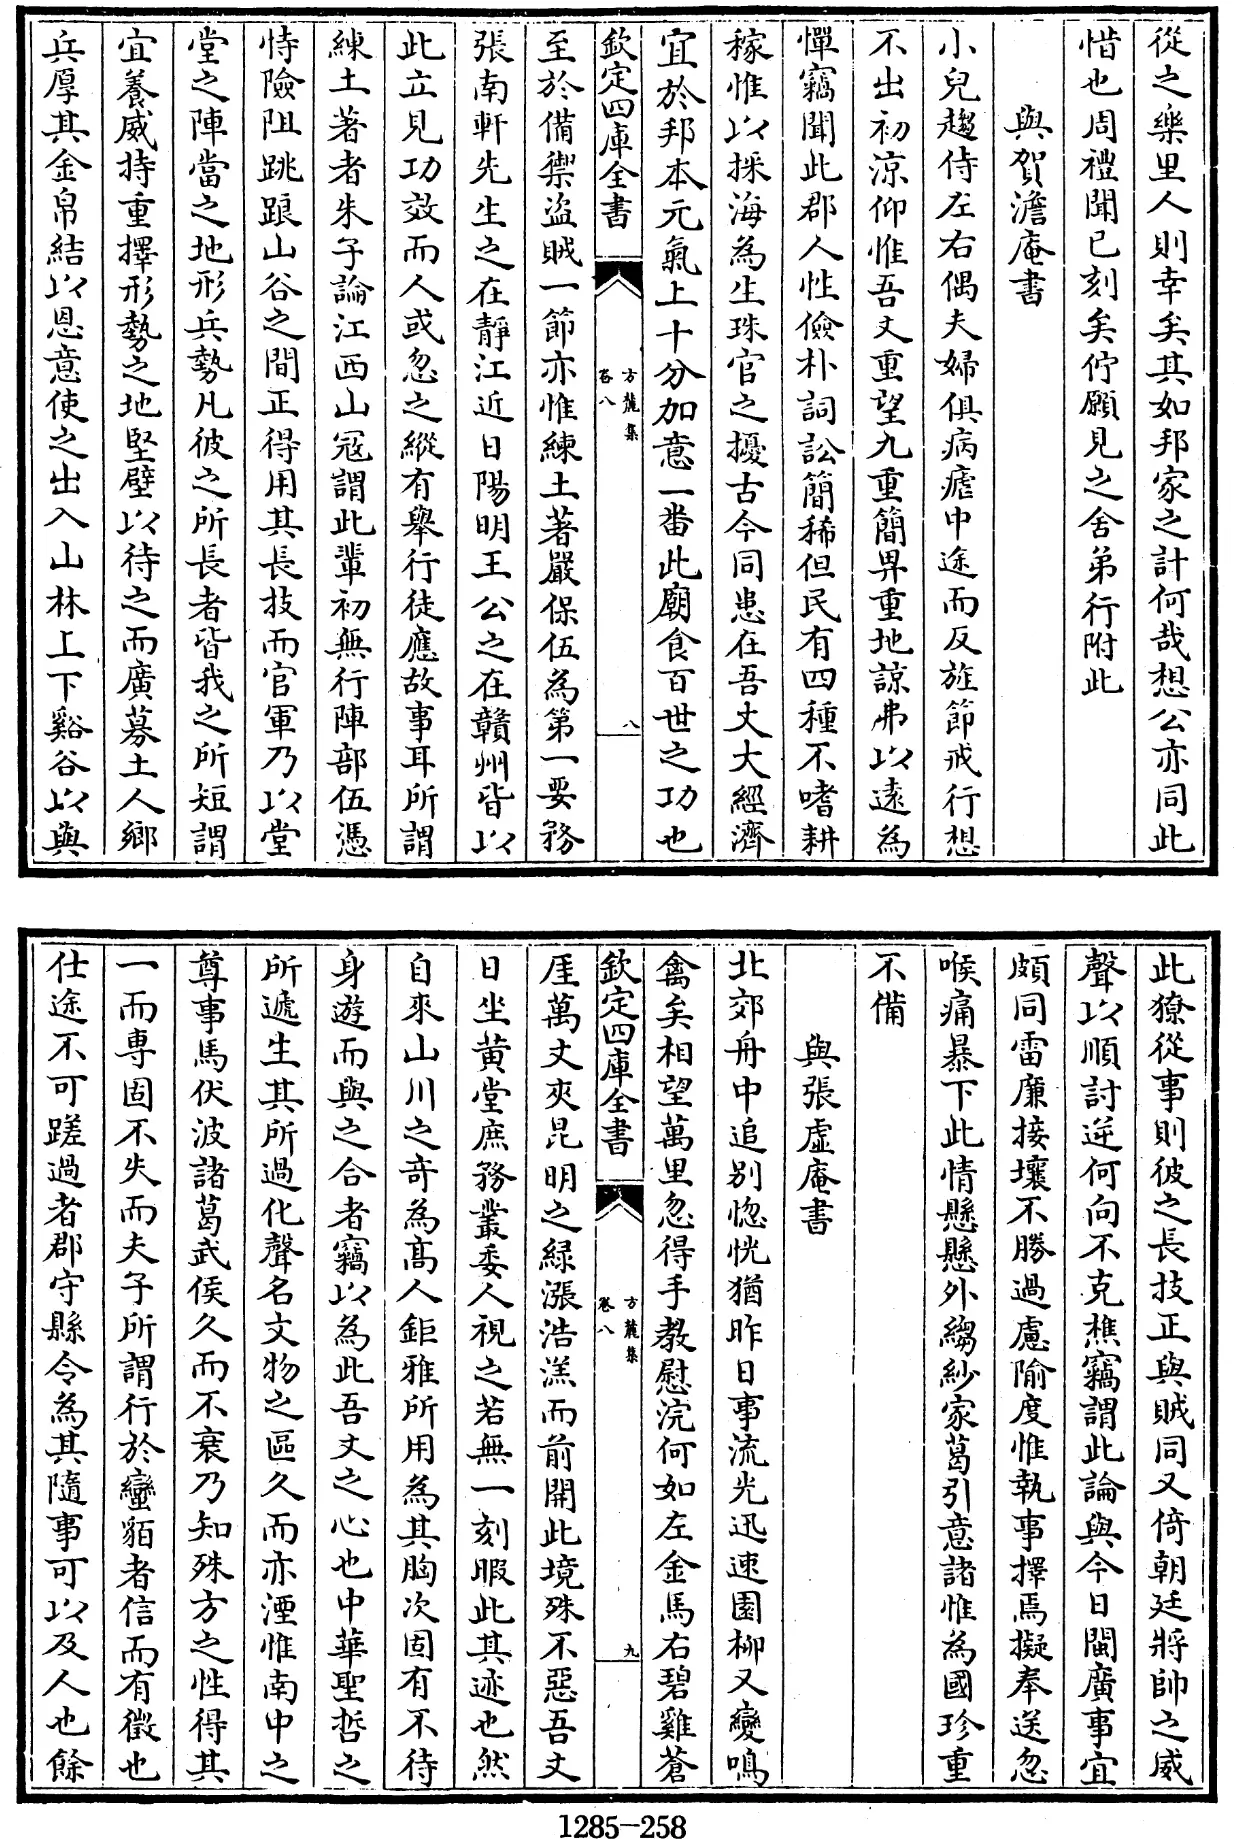 從之樂里人則幸矣其如邦家之計何哉想公亦同此
惜也周禮聞已刻矣佇願見之舍弟行附此
與賀澹庵書
小兒趨侍左右偶夫婦俱病瘧中途而反旌節戒行想
不出初涼仰惟吾丈重望九重簡畀重地諒弗以遠為
憚竊聞此郡人性儉朴詞訟簡稀但民有四種不嗜耕
稼惟以採海為生珠官之擾古今同患在吾丈大經濟
宜於邦本元氣上十分加意一番此廟食百世之功也
欽定四庫全書
方麓集
卷八
八
至於備禦盜賊一節亦惟練土著嚴保伍為第一要務
張南軒先生之在靜江近日陽明王公之在贛州皆以
此立見功效而人或忽之縱有舉行徒應故事耳所謂
練土著者朱子論江西山冦謂此輩初無行陣部伍憑
恃險阻跳踉山谷之間正得用其長技而官軍乃以堂
堂之陣當之地形兵勢凡彼之所長者皆我之所短謂
宜養威持重擇形勢之地堅壁以待之而廣募土人鄉
兵厚其金帛結以恩意使之出入山林上下谿谷以與
此獠從事則彼之長技正與賊同又倚朝廷將帥之威
聲以順討逆何向不克樵竊謂此論與今日閩廣事宜
頗同雷廉接壤不勝過慮隃度惟執事擇焉擬奉送忽
喉痛暴下此情懸懸外縐紗家葛引意諸惟為國珍重
不備
與張虛庵書
北郊舟中追別惚恍猶昨日事流光迅速園柳又變鳴
禽矣相望萬里忽得手教慰浣何如左金馬右碧雞蒼
欽定四庫全書
方麓集
卷八
九
厓萬丈夾昆明之綠漲浩溔而前開此境殊不惡吾丈
日坐黃堂庶務叢委人視之若無一刻暇此其迹也然
自來山川之奇為高人鉅雅所用為其胸次固有不待
身遊而與之合者竊以為此吾丈之心也中華聖哲之
所遞生其所過化聲名文物之區久而亦湮惟南中之
尊事馬伏波諸葛武侯久而不衰乃知殊方之性得其
一而專固不失而夫子所謂行於蠻貊者信而有徵也
仕途不可蹉過者郡守縣令為其隨事可以及人也餘
1285-258